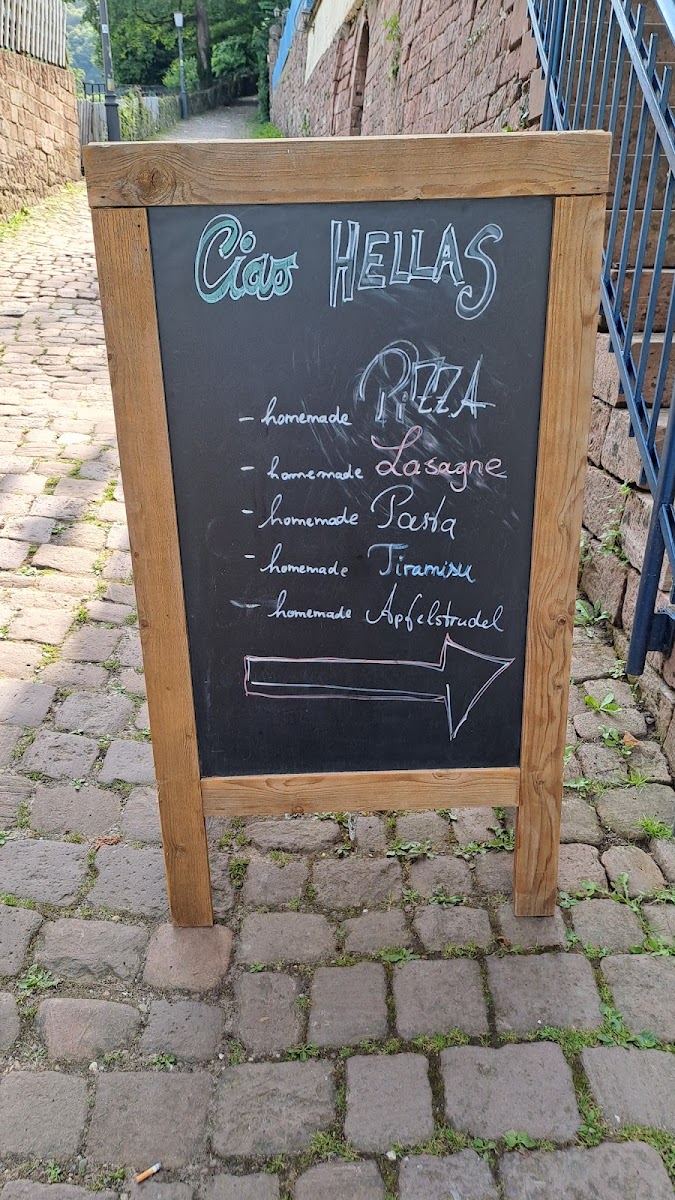 Ciao HELLAS
- homemade PIZZA
- homemade Lasagne
- homemade Pasta
- homemade Tiramisu
- homemade Apfelstrudel